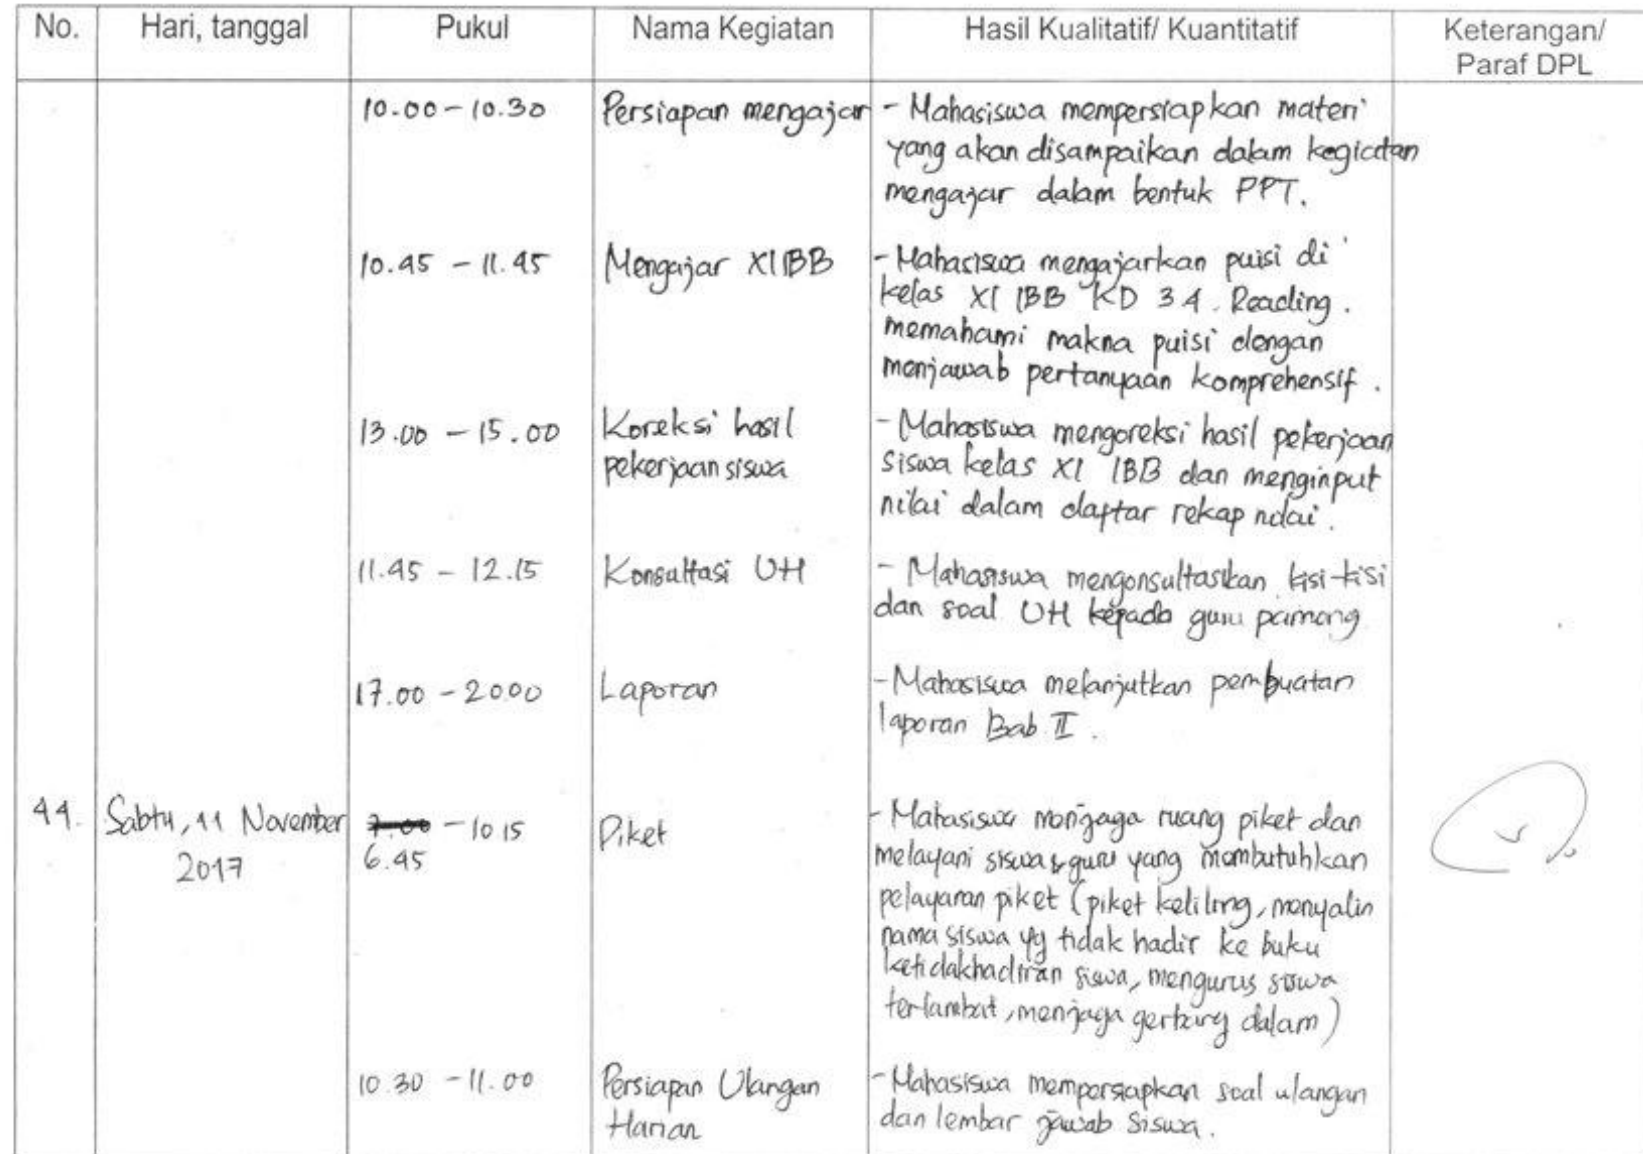 No. Hari, tanggal Pukul Nama Kegiatan Hasil Kualitatif/ Kuantitatif Keterangan/
Paraf DPL
10.00 - 10.30 Persiapan mengajar - Mahasiswa mempersiapkan materi
yang akan disampaikan dalam kegiatan
mengajar dalam bentuk PPT.
10.45 - 11.45 Mengajar XI IBB - Mahasiswa mengajarkan puisi di
kelas XI IBB KD 3.4. Reading.
memahami makna puisi dengan
menjawab pertanyaan komprehensif.
13.00 - 15.00 Koreksi hasil - Mahasiswa mengoreksi hasil pekerjaan
pekerjaan siswa siswa kelas XI IBB dan menginput
nilai dalam daftar rekap nilai.
11.45 - 12.15 Konsultasi UH - Mahasiswa mengonsultasikan kisi-kisi
dan soal UH kepada guru pamong
17.00 - 20.00 Laporan - Mahasiswa melanjutkan pembuatan
laporan Bab II.
44. Sabtu, 11 November 7.00 - 10.15 Piket - Mahasiswa menjaga ruang piket dan
2017 6.45 melayani siswa & guru yang membutuhkan
pelayanan piket (piket keliling, menyalin
nama siswa yg tidak hadir ke buku
ketidakhadiran siswa, mengurus siswa
terlambat, menjaga gerbang dalam)
10.30 - 11.00 Persiapan Ulangan - Mahasiswa mempersiapkan soal ulangan
Harian dan lembar jawab siswa.